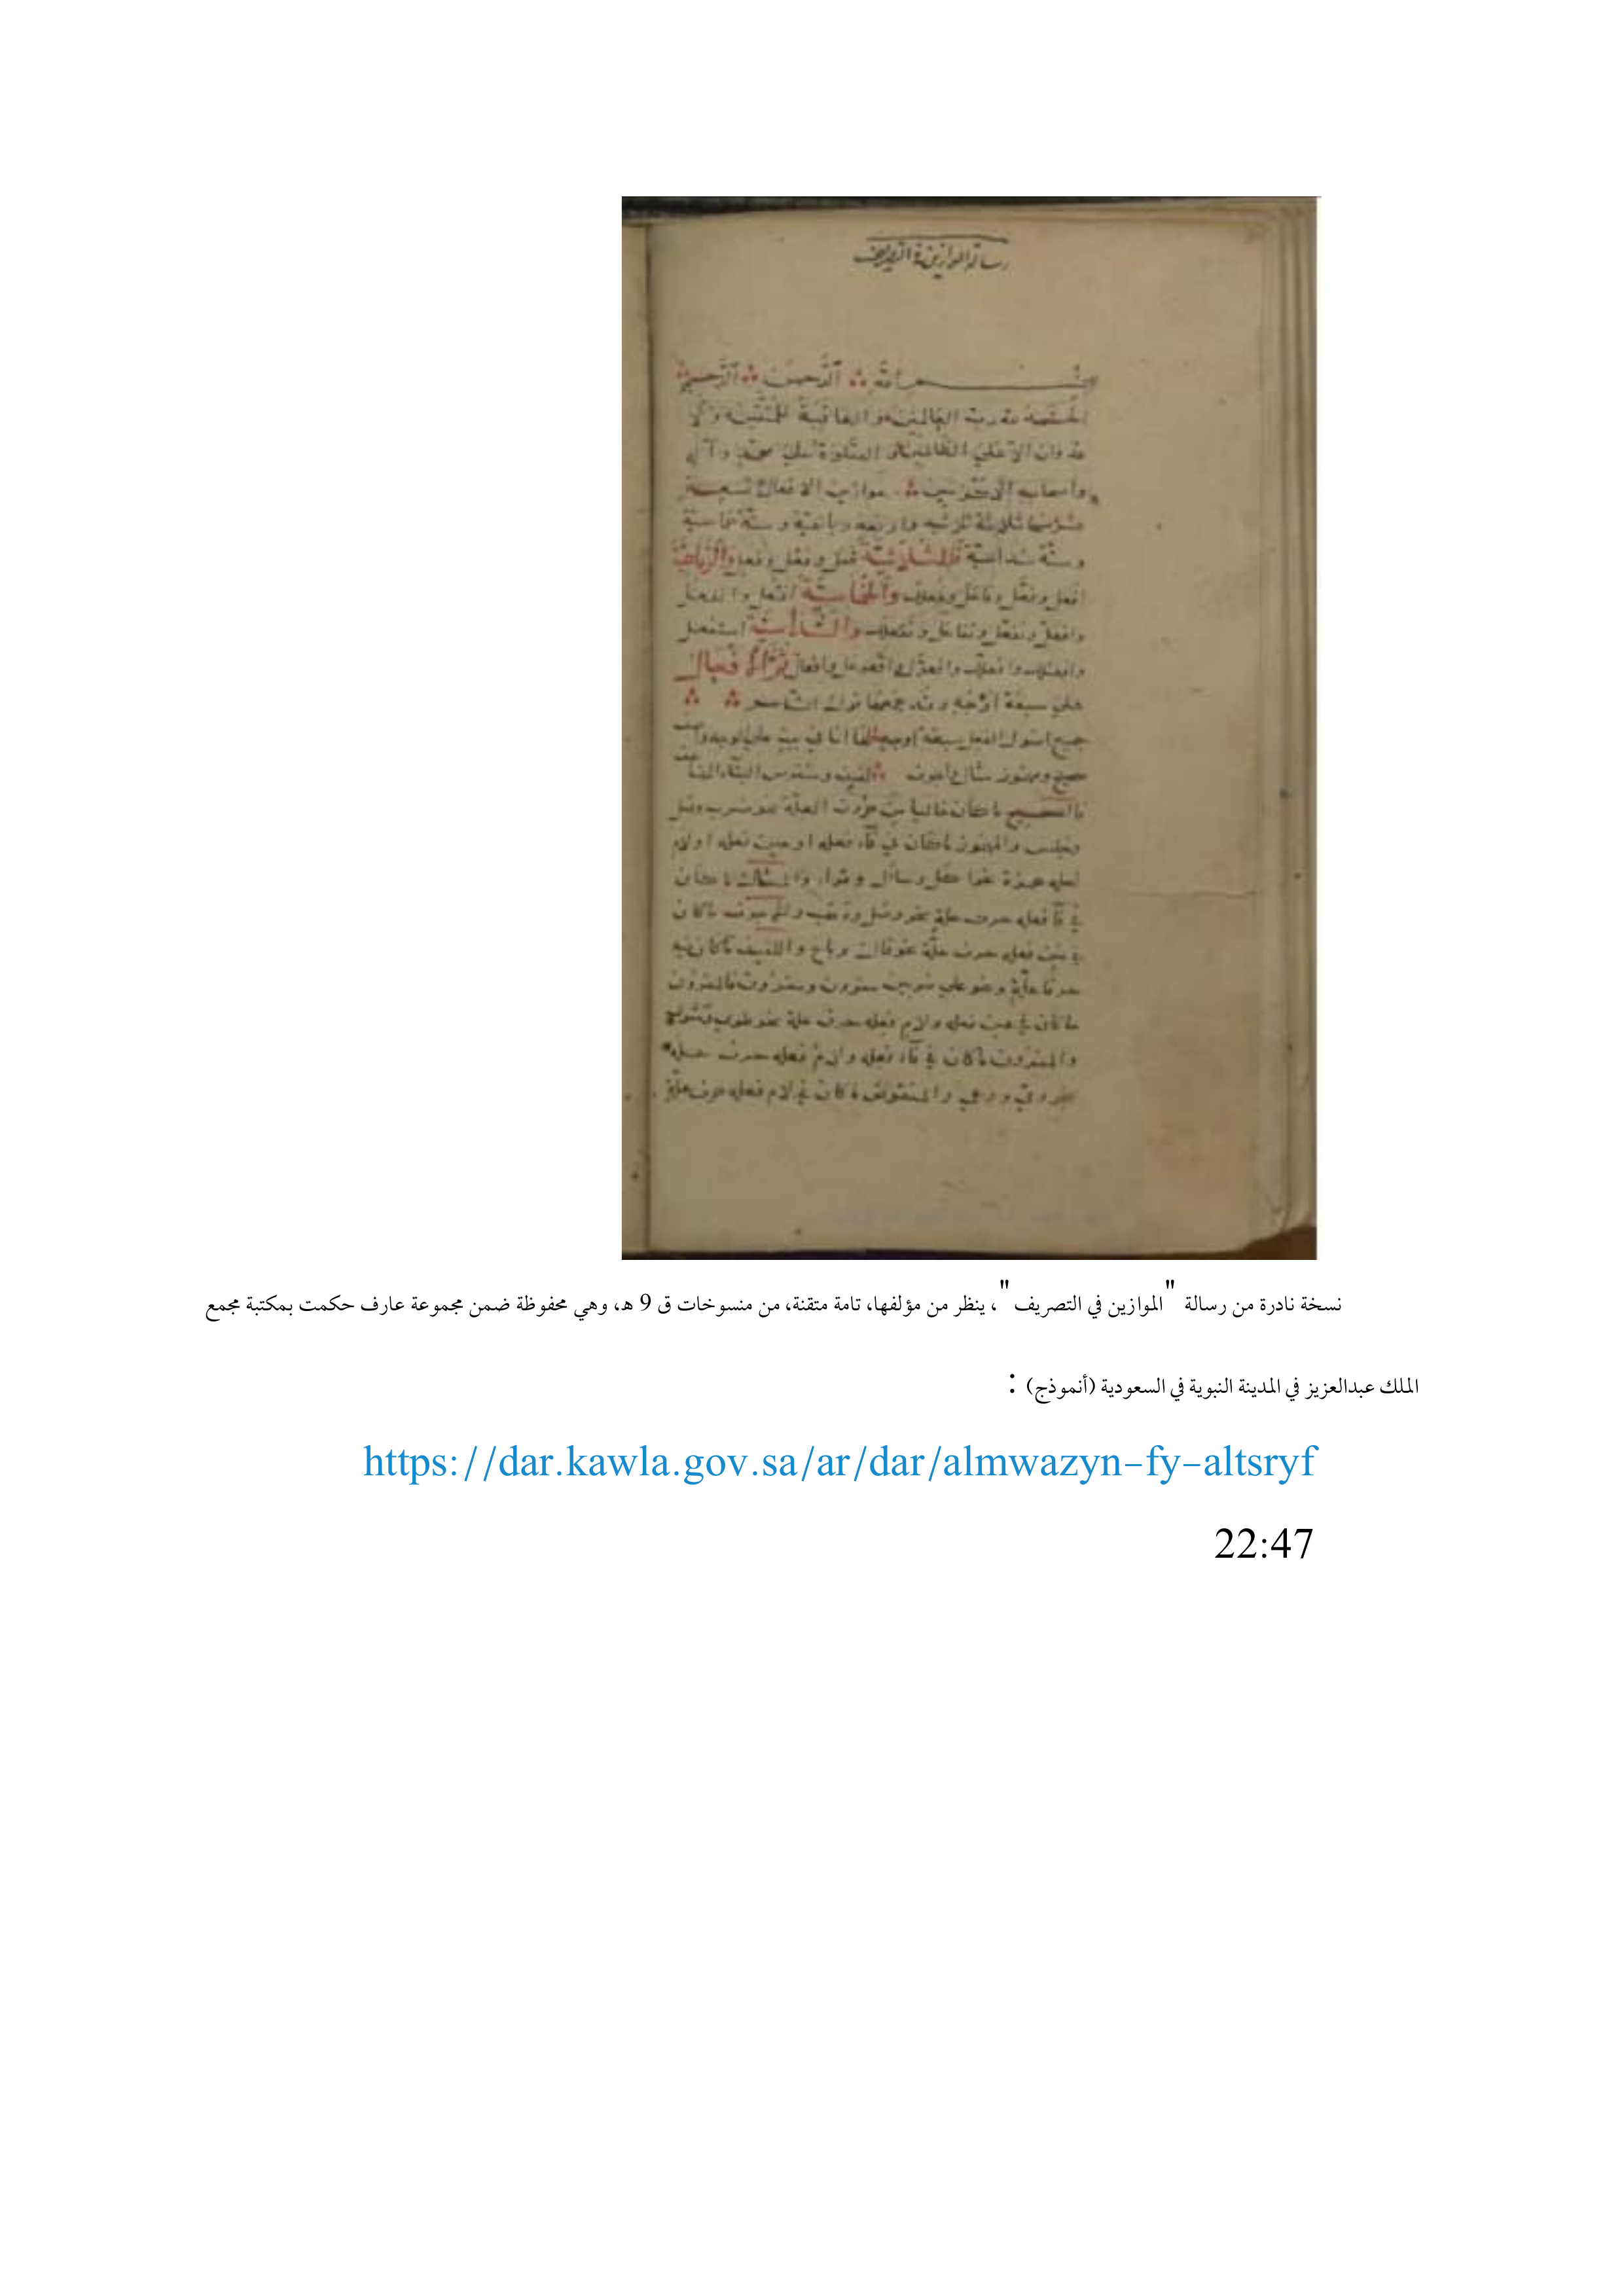 رسالة الموازين في التصريف
بسم الله الرحمن الرحيم
الحمد لله رب العالمين والعاقبة للمتقين ولا
عدوان الا على الظالمين والصلوة على محمد وآله
وأصحابه موازين الافعال تسعة
عشر منها ثلاثة ثلاثية واربعة رباعية وستة خماسية
وستة سداسية فالثلاثية فعل وفعل وفعل والرباعية
افعل وفعّل وفاعل وفعلل والخماسية افتعل وانفعل
وافعلّ وتفعّل وتفاعل وتفعلل والسداسية استفعل
وافعنلل وافعللّ وافعوّل وافعوعل وافعالّ ثم الافعال
على سبعة أوجه وقد جمعها قول الشاعر
جميع اصول الفعل سبعة اوجه
صحيح ومهموز مثال واجوف لفيف ومنقوص البناء المضاعف
فالصحيح ما كان خاليا من حروف العلة نحو ضرب وقتل
وجلس والمهموز ما كان في فاء فعله او عين فعله او لام
فعله همزة نحو اكل وسأل وقرأ والمثال ما كان
في فاء فعله حرف علة نحو وصل والاجوف ما كان
في عين فعله حرف علة نحو قال وباع واللفيف ما كان فيه
حرفا علة وهو على ضربين مقرون ومفروق فالمقرون
ما كان في عين فعله ولام فعله حرف علة نحو طوى
والمفروق ما كان في فاء فعله ولام فعله حرف علة
نحو وقى ووعى والمنقوص ما كان في لام فعله حرف علة
نسخة نادرة من رسالة "الموازين في التصريف"، ينظر من مؤلفها، تامة متقنة، من منسوخات ق 9 هـ، وهي محفوظة ضمن مجموعة عارف حكمت بمكتبة مجمع
الملك عبدالعزيز في المدينة النبوية في السعودية (أنموذج) :
https://dar.kawla.gov.sa/ar/dar/almwazyn-fy-altsryf
22:47